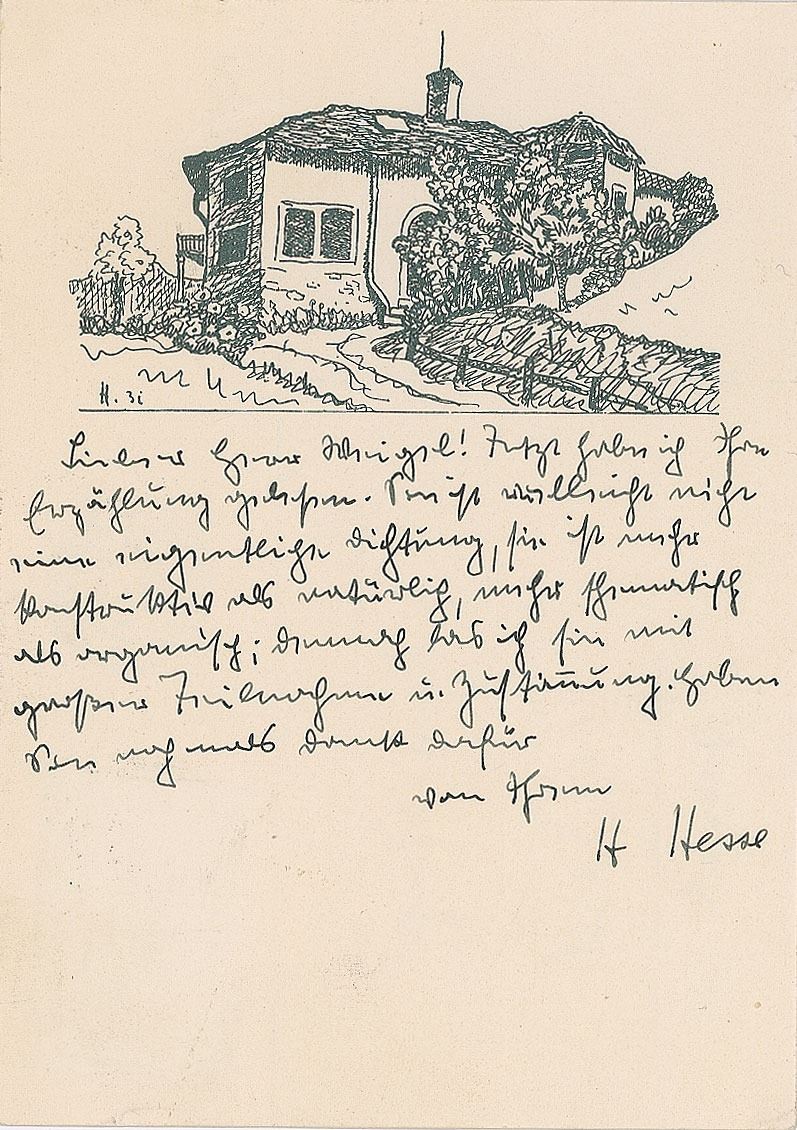 H. 31
Lieber Herr Weigel! Jetzt habe ich Ihre
Erzählung gelesen. Sie ist vielleicht nicht
eine eigentliche Dichtung, sie ist mehr
konstruktiv als natürlich, mehr schematisch
als organisch; dennoch las ich sie mit
großer Teilnahme u. Zustimmung. Haben
Sie nochmals Dank dafür
von Ihrem
H Hesse